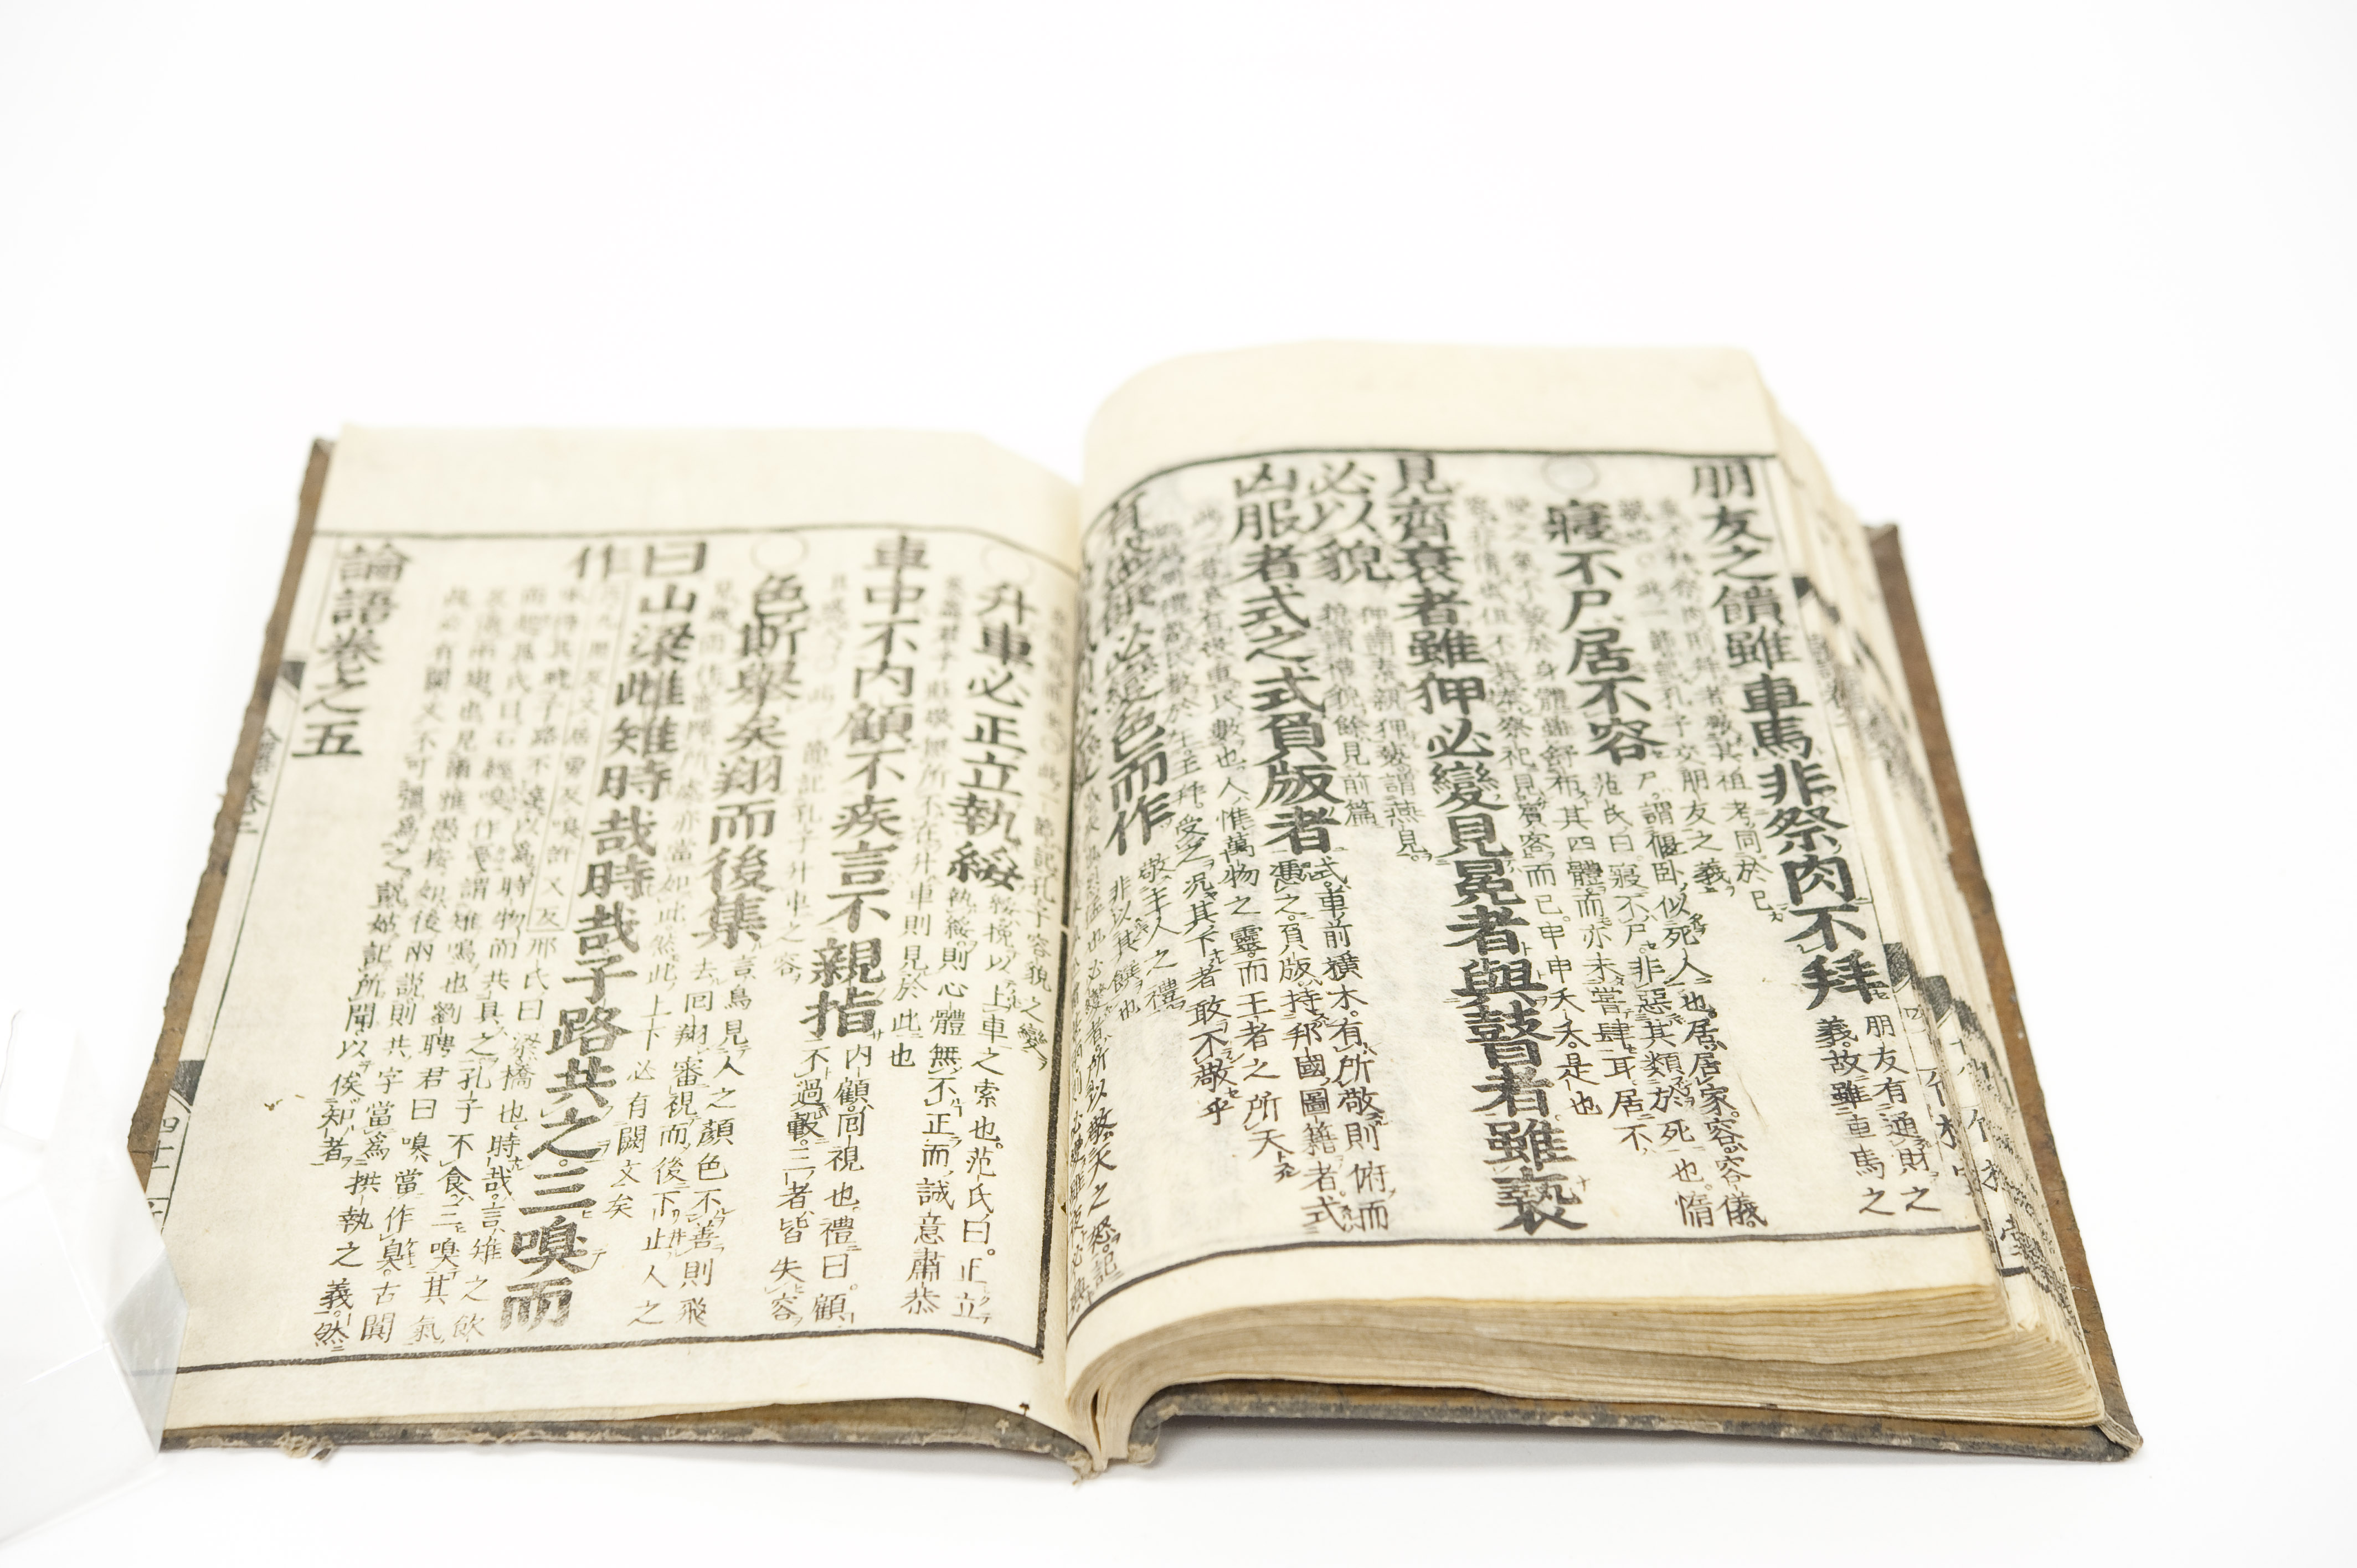 朋友之饋雖車馬非祭肉不拜
朋友有通財之
義故雖車馬之
重不拜祭肉則拜者敬其祖考同於己
親也○此一節記孔子交朋友之義
○寢不尸居不容
尸謂偃臥似死人也居居家容容儀
范氏曰寢不尸非惡其類於死也惰
慢之氣不設於身體雖舒布其四體而亦未嘗肆耳居不
容非惰也但不若奉祭祀見賓客而已申申夭夭是也
見齊衰者雖狎必變見冕者與瞽者雖褻
必以貌
狎謂素親狎褻謂燕見
貌謂禮貌餘見前篇
凶服者式之式負版者
式車前橫木有所敬則俯而
憑之負版持邦國圖籍者式
此二者哀有喪重民數也人惟萬物之靈而王者之所天
也故周禮獻民數於王王拜受之況其下者敢不敬乎
有盛饌必變色而作
敬主人之禮
非以其饌也
必變者所以敬天之怒記
此一節記孔子容貌之變
○升車必正立執綏
綏挽以上車之索也范氏曰正立
執綏則心體無不正而誠意肅恭
蓋君子莊敬無所不在升車則見於此也
車中不內顧不疾言不親指
內顧回視也禮曰顧
不過轂三者皆失容
且惑人○此一節記孔子升車之容
○色斯舉矣翔而後集
言鳥見人之顏色不善則飛
去回翔審視而後下止人之
見幾而作審擇所處亦當如此然此上下必有闕文矣
曰山梁雌雉時哉時哉子路共之三嗅而
作
共九用反又居勇反嗅許又反邢氏曰梁橋也時哉言雉之飲
啄得其時子路不達以爲時物而共具之孔子不食三嗅其氣
而起晁氏曰石經嗅作戞謂雉鳴也劉聘君曰嗅當作狊古闃
反張兩翅也見爾雅愚按如後兩說則共字當爲拱執之義然
此必有闕文不可彊爲之說姑記所聞以俟知者
論語卷之五